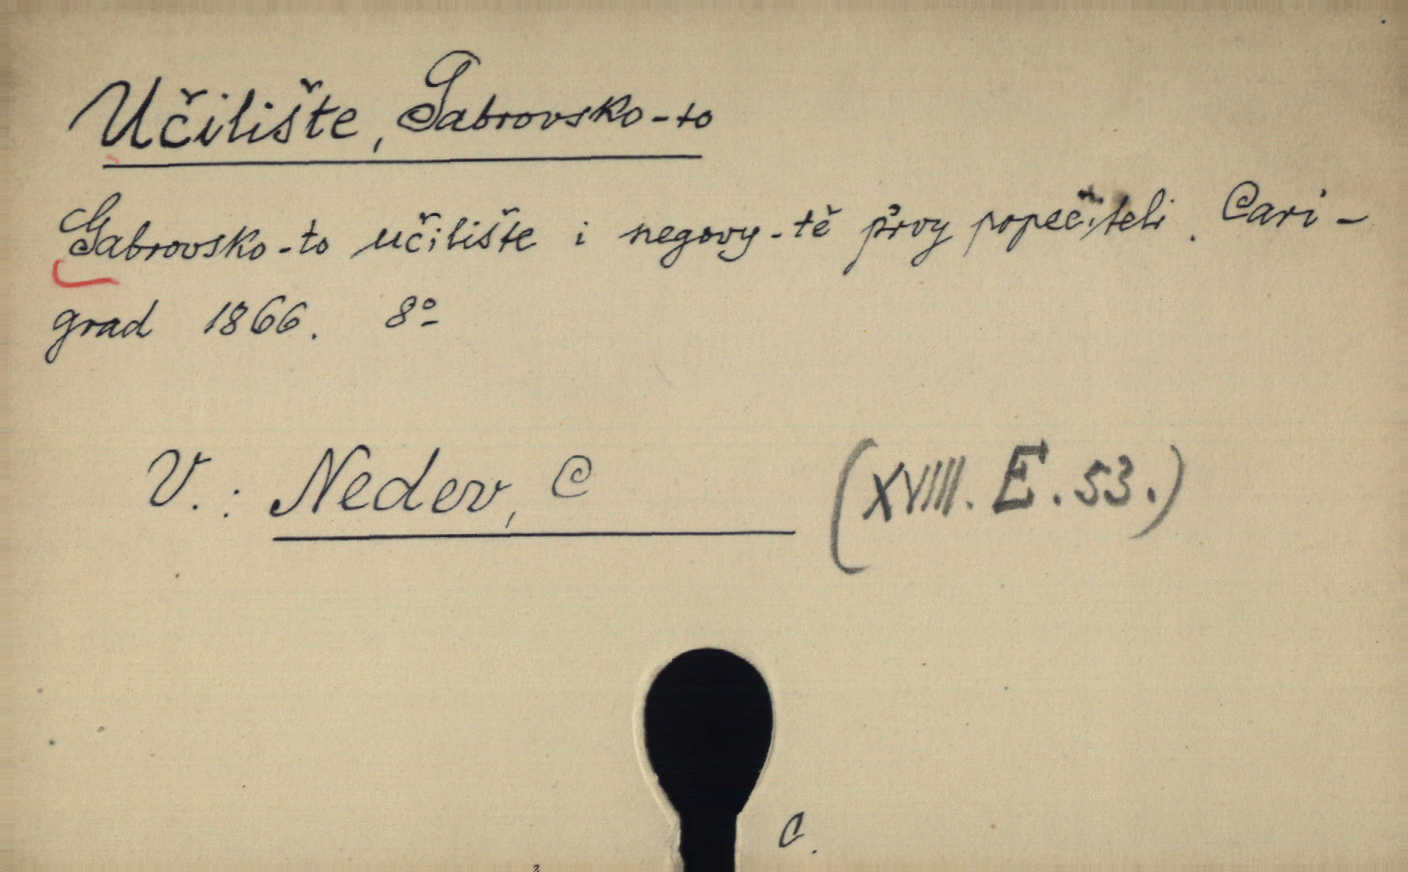 Učilište, Gabrovsko-to
Gabrovsko-to učilište i negovy-tě pŭrvy popečiteli. Cari-
grad 1866. 8º
V.: Nedev, C (XVIII. E. 53.)
C.